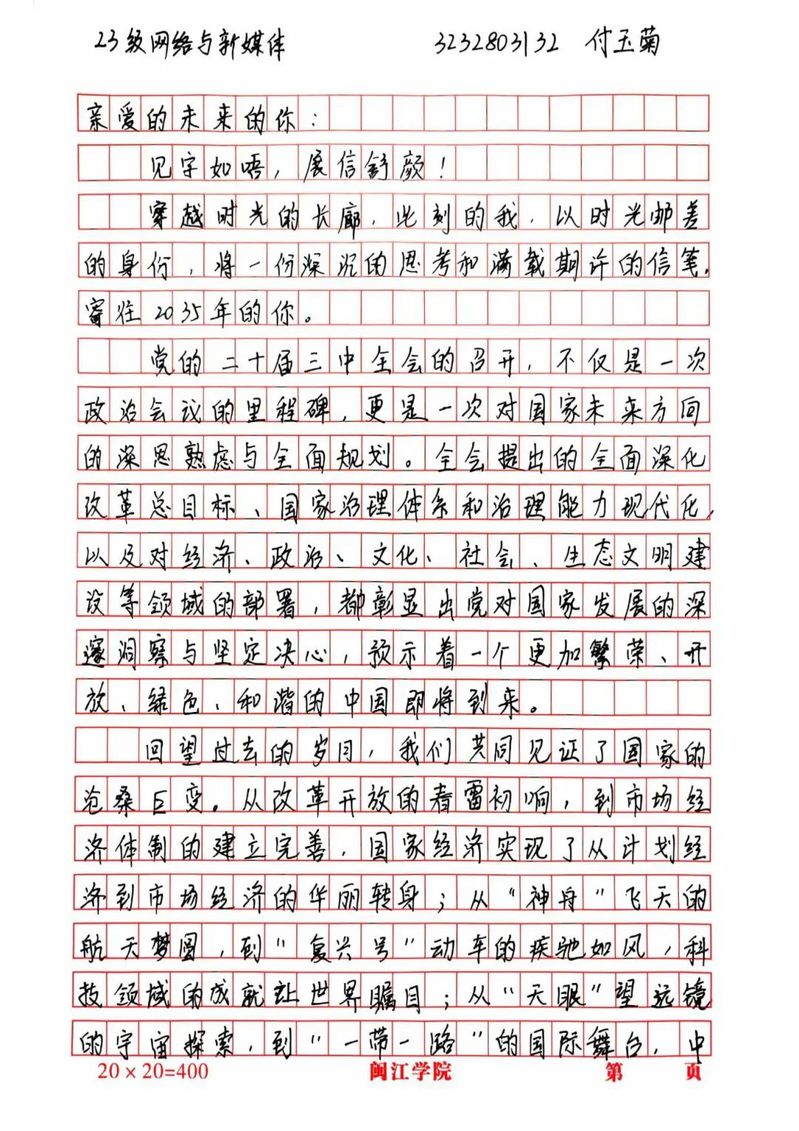 23级网络与新媒体 3232803132 付玉菊
亲爱的未来的你：
见字如唔，展信舒颜！
穿越时光的长廊，此刻的我，以时光邮差
的身份，将一份深沉的思考和满载期许的信笔，
寄往2035年的你。
党的二十届三中全会的召开，不仅是一次
政治会议的里程碑，更是一次对国家未来方向
的深思熟虑与全面规划。全会提出的全面深化
改革总目标、国家治理体系和治理能力现代化，
以及对经济、政治、文化、社会、生态文明建
设等领域的部署，都彰显出党对国家发展的深
邃洞察与坚定决心，预示着一个更加繁荣、开
放、绿色、和谐的中国即将到来。
回望过去的岁月，我们共同见证了国家的
沧桑巨变。从改革开放的春雷初响，到市场经
济体制的建立完善，国家经济实现了从计划经
济到市场经济的华丽转身；从“神舟”飞天的
航天梦圆，到“复兴号”动车的疾驰如风，科
技领域的成就让世界瞩目；从“天眼”望远镜
的宇宙探索，到“一带一路”的国际舞台，中
20×20=400 闽江学院 第 页